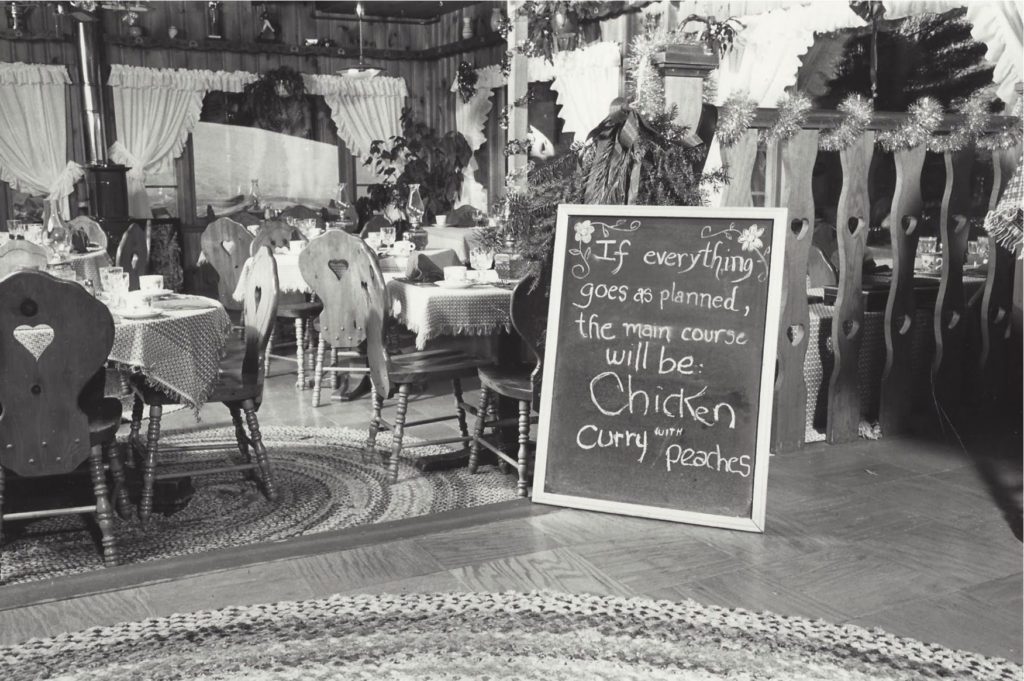 If everything
goes as planned,
the main course
will be:
Chicken
curry WITH
peaches